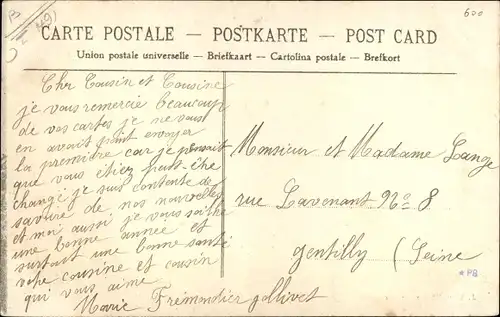 B
600
CARTE POSTALE — POSTKARTE — POST CARD
Union postale universelle — Briefkaart — Cartolina postale — Brefkort
Cher Cousin et Cousine
je vous remercie beaucoup
de vos cartes je ne vous
en avait point envoyer
la première car je pensait
que vous étiez peut-être
changé je suis contente de
savoire de nos nouvelles
et moi aussi je vous saithe
une bonne année et
surtout une bonne santé
votre cousine et cousin
qui vous aime
Marie Frémondier Jollivet
Monsieur et Madame Lange
rue Lavenant No 8
gentilly (Seine
*PB